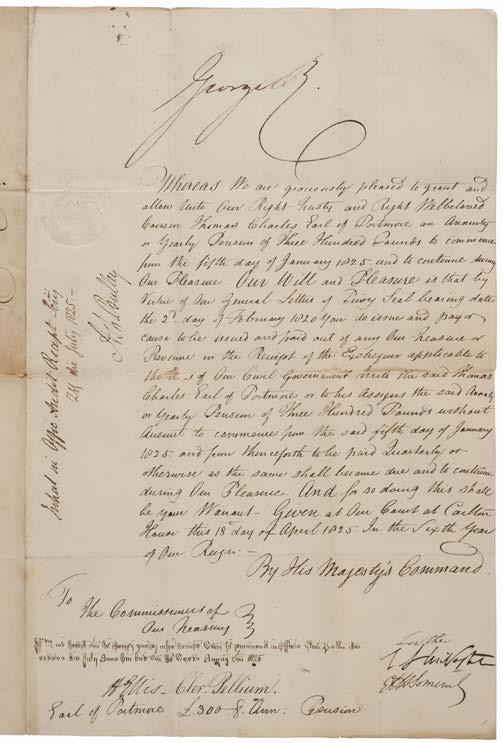 George R.
Whereas We are graciously pleased to grant and
allow Unto Our Right Trusty and Right Welbeloved
Cousin Thomas Charles Earl of Portmore an Annuity
or Yearly Pension of Three Hundred Pounds to commence
from the fifth day of January 1825 and to continue during
Our Pleasure. Our Will and Pleasure is that by
Virtue of Our General Letters of Privy Seal bearing date
the 2d. day of February 1820 You do issue and pay or
cause to be issued and paid out of any Our Treasure or
Revenue in the Receipt of the Exchequer applicable to
the of Our Civil Government Unto the said Thomas
Charles Earl of Portmore or to his Assigns the said Annuity
or Yearly Pension of Three Hundred Pounds without
Account to commence from the said fifth day of January
1825. and from thenceforth to be paid Quarterly or
otherwise as the same shall become due and to continue
during Our Pleasure. And for so doing this shall
be Your Warrant. Given at Our Court at Carlton
House this 18th day of April 1825. In the Sixth Year
of Our Reign.
By His Majesty's Command.
To
The Commissioners of
Our Treasury
H Ellis Cler. Pellium.
Earl of Portmore £300 P. Ann: Pension
in Offic Audit Recept
July 1825